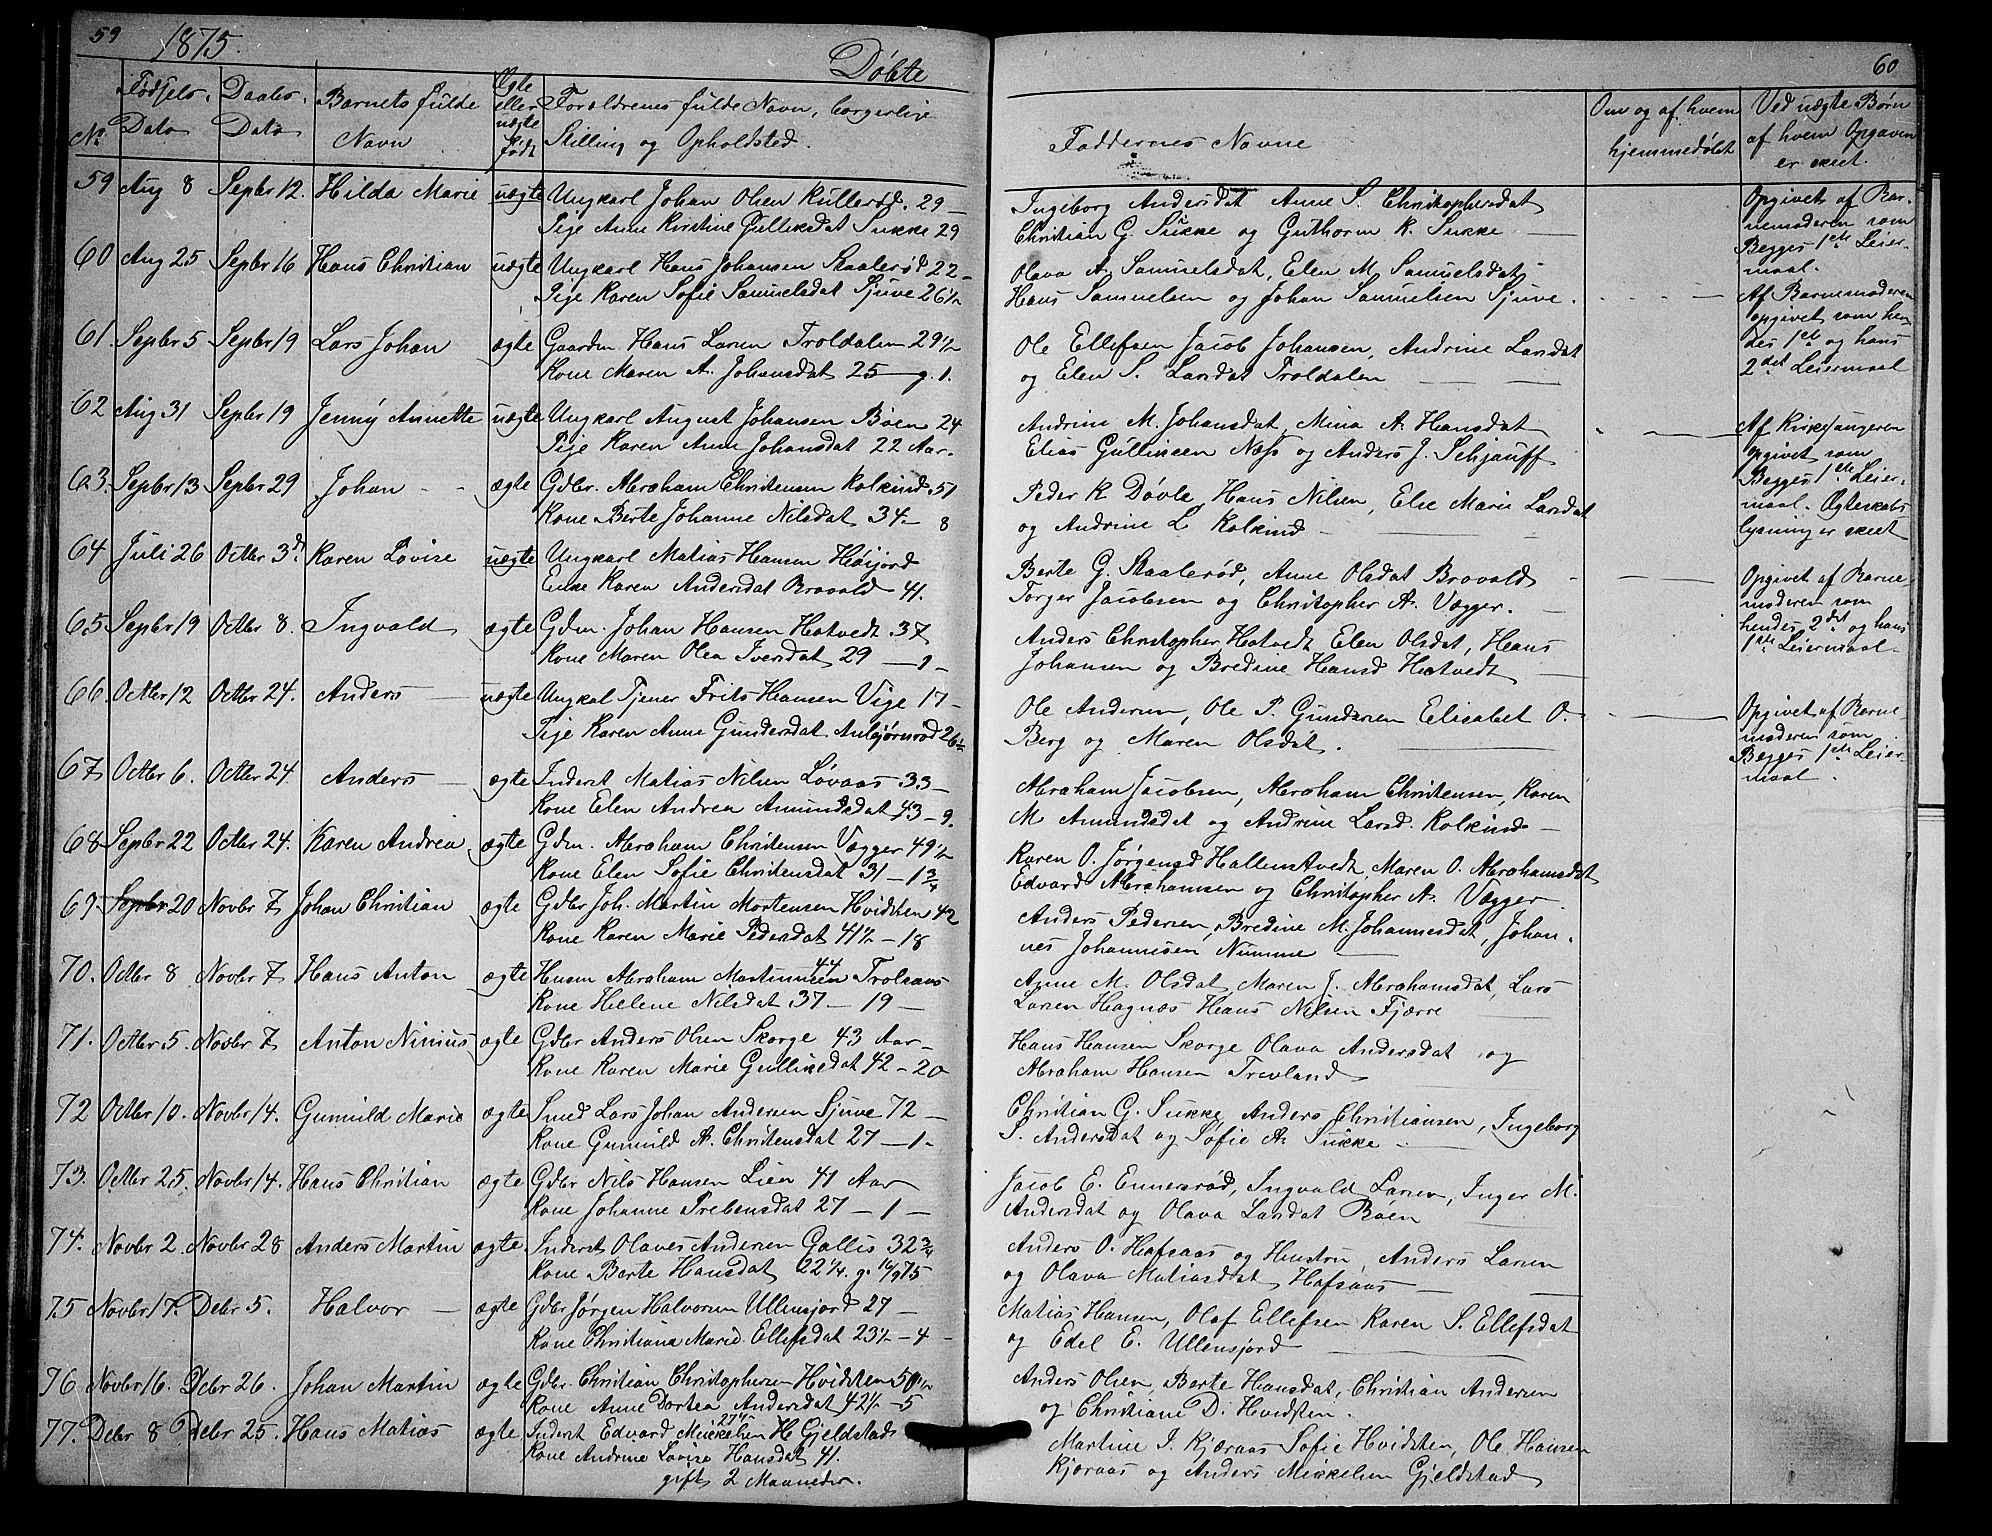 59 1875. Døbte
No. Fødsels-Dato Daabs-Dato Barnets fulde Navn Ægte eller uægte født Forældrenes fulde Navn, borgerlige Stilling og Opholdsted.
59 Aug 8 Sepbr 12. Hilda Marie uægte Ungkarl Johan Olsen Kullerød. 29 —
Pige Anne Kirstine Gulliksdat Sukke 29
60 Aug 25 Sepbr 16 Hans Christian uægte Ungkarl Hans Johansen Staalerød 22 —
Pige Karen Sofie Samuelsdat Sjuve 26 1/2
61. Sepbr 5 Sepbr 19 Lars Johan ægte Gaardm Hans Larsen Troldalen 29 1/2
Kone Maren A. Johansdat 25 — g. 1.
62 Aug 31 Sepbr 19 Jenny Annette uægte Ungkarl August Johansen Bøen 24
Pige Karen Anne Johansdat 22 Aar.
63. Sepbr 13 Sepbr 29 Johan - - ægte Gdbr. Abraham Christensen Kolkind 51
Kone Berte Johanne Nilsdat 34 — 8
64 Juli 26 Octbr 3d. Karen Lovise uægte Ungkarl Matias Hansen Høijord
Enke Karen Andersdat Brovald 41.
65 Sepbr 19 Octbr 8. Ingvald ægte Gdm. Johan Hansen Hotvedt 37
Kone Maren Olea Iversdat 29 — 1 —
66 Octbr 12 Octbr 24. Anders uægte Ungkal Tjener Frits Hansen Vige 17 —
Pige Karen Anne Gundersdat Anbjørnrød 26 1/2
67 Octbr 6. Octbr 24. Anders — ægte Inderst Matias Nilsen Løvaas 33 —
Kone Elen Andrea Amundsdat 43 — 9.
68 Sepbr 22 Octbr 24. Karen Andrea ægte Gdm. Abraham Christensen Vægger 49 1/2
Kone Elen Sofie Christensdat 31 — 1 3/4
69. Sepbr 20 Novbr 7 Johan Christian ægte Gdbr Joh. Martin Mortensen Hvidsten 42
Kone Karen Marie Pedersdat 41 1/2 — 18
70. Octbr 8 Novbr 7 Hans Anton ægte Husm Abraham Martinusen 44 Trolsaas
Kone Helene Nilsdat 37 — 19 —
71. Octbr 5. Novbr 7 Anton Ninius ægte Gdbr Anders Olsen Skorge 43 Aar —
Kone Karen Marie Gulliksdat 42 — 20
72 Octbr 10. Novbr 14. Gunnild Marie ægte Smed Lars Johan Andersen Sjuve 72 —
Kone Gunnild A. Christensdat 27 — 1 —
73. Octbr 25. Novbr 14. Hans Christian ægte Gdbr Nils Hansen Lien 41 Aar
Kone Johanne Prebensdat 27 — 1 —
74. Novbr 2. Novbr 28 Anders Martin ægte Inderst Olaves Andersen Gallis 32 3/4
Kone Berte Hansdat 22 1/4. g. 16/9 75
75 Novbr 17. Debr 5. Halvor — ægte Gdbr Jørgen Halvorsen Ullensjord 27 —
Kone Christiana Marie Ellefsdat 23 1/2 — 4 —
76 Novbr 16. Debr 26. Johan Martin ægte Gdbr Christian Christophersen Hvidsten 50 1/2
Kone Anne Dortea Andersdat 42 1/2 — 5
77. Debr 8 Debr 25. Hans Matias ægte Inderst Edvard Mikkelsen 27 1/2 H Gjeldstad
Kone Andrine Lovise Hansdat 41.
gift 2 Maaneder.
60
Faddernes Navne Om og af hvem hjemmedøbt Ved uægte Børn af hvem Opgaven er skeet.
Ingeborg Andersdat Anne S. Christophersdat
Christian G. Sukke og Guthorm K. Sukke —
Opgivet af Barnemoderen som Begges 1ste Leiermaal.
Olava A. Samuelsdat, Elen M. Samuelsdat
Hans Samuelsen og Johan Samuelsen Sjuve.
Af Barnemoderen opgivet som hendes 1ste og hans 2det Leiermaal
Ole Ellefsen Jacob Johansen, Andrine Larsdat
og Elen S. Larsdat Troldalen
Andrine M. Johansdat, Mina A. Hansdat
Elias Gullinsen Næss og Anders J. Schjauff
Af Kirkesangeren opgivet som Begges 1ste Leiermaal. Ægteskabs lysning er skeet
Peder K Døvle, Hans Nilsen, Else Marie Larsdat
og Andrine L Kolkind
Berte G. Staalerød, Anne Olsdat Brovald
Torger Jacobsen og Christopher A. Vægger.
Opgivet af Barnemoderen som hendes 2det og hans 1ste Leiermaal
Anders Christopher Hotvedt Elen Olsdat, Hans
Johansen og Bredine Hansd Hotvedt
Ole Andersen, Ole P. Gundersen Elisabet O.
Berg og Maren Olsdat.
Opgivet af Barnemoderen som Begges 1ste Leiermaal.
Abraham Jacobsen, Abraham Christensen, Karen
M Amundsdat og Andrine Larsd. Kolkind
Karen O. Jørgensd Hallenstvedt, Maren O. Abrahamsdat
Edvard Abrahamsen og Christopher A. Vægger.
Anders Pedersen, Bredine M. Johannesdat, Johannes Johannesen Numme
Anne M. Olsdat, Maren J. Abrahamsdat, Lars
Larsen Hagnæs Hans Nilsen Fjærre
Hans Hansen Skorge Olava Andersdat og
Abraham Hansen Trevland
Christian G. Sukke, Anders Christiansen, Ingeborg
S. Andersdat og Sofie A. Sukke
Jacob E. Ennersrød, Ingvald Larsen, Inger M.
Andersdat og Olava Larsdat Bøen
Anders O. Hafsaas og Hustru, Anders Larsen
og Olava Matiasdat Hafsaas
Matias Hansen, Olaf Ellefsen Karen S. Ellefsdat
og Edel E. Ullensjord
Anders Olsen, Berte Hansdat, Christian Andersen
og Christiane D. Hvidsten.
Martine I. Kjæraas Sofie Hvidsten, Ole Hansen
Kjæraas og Anders Mikkelsen Gjeldstad